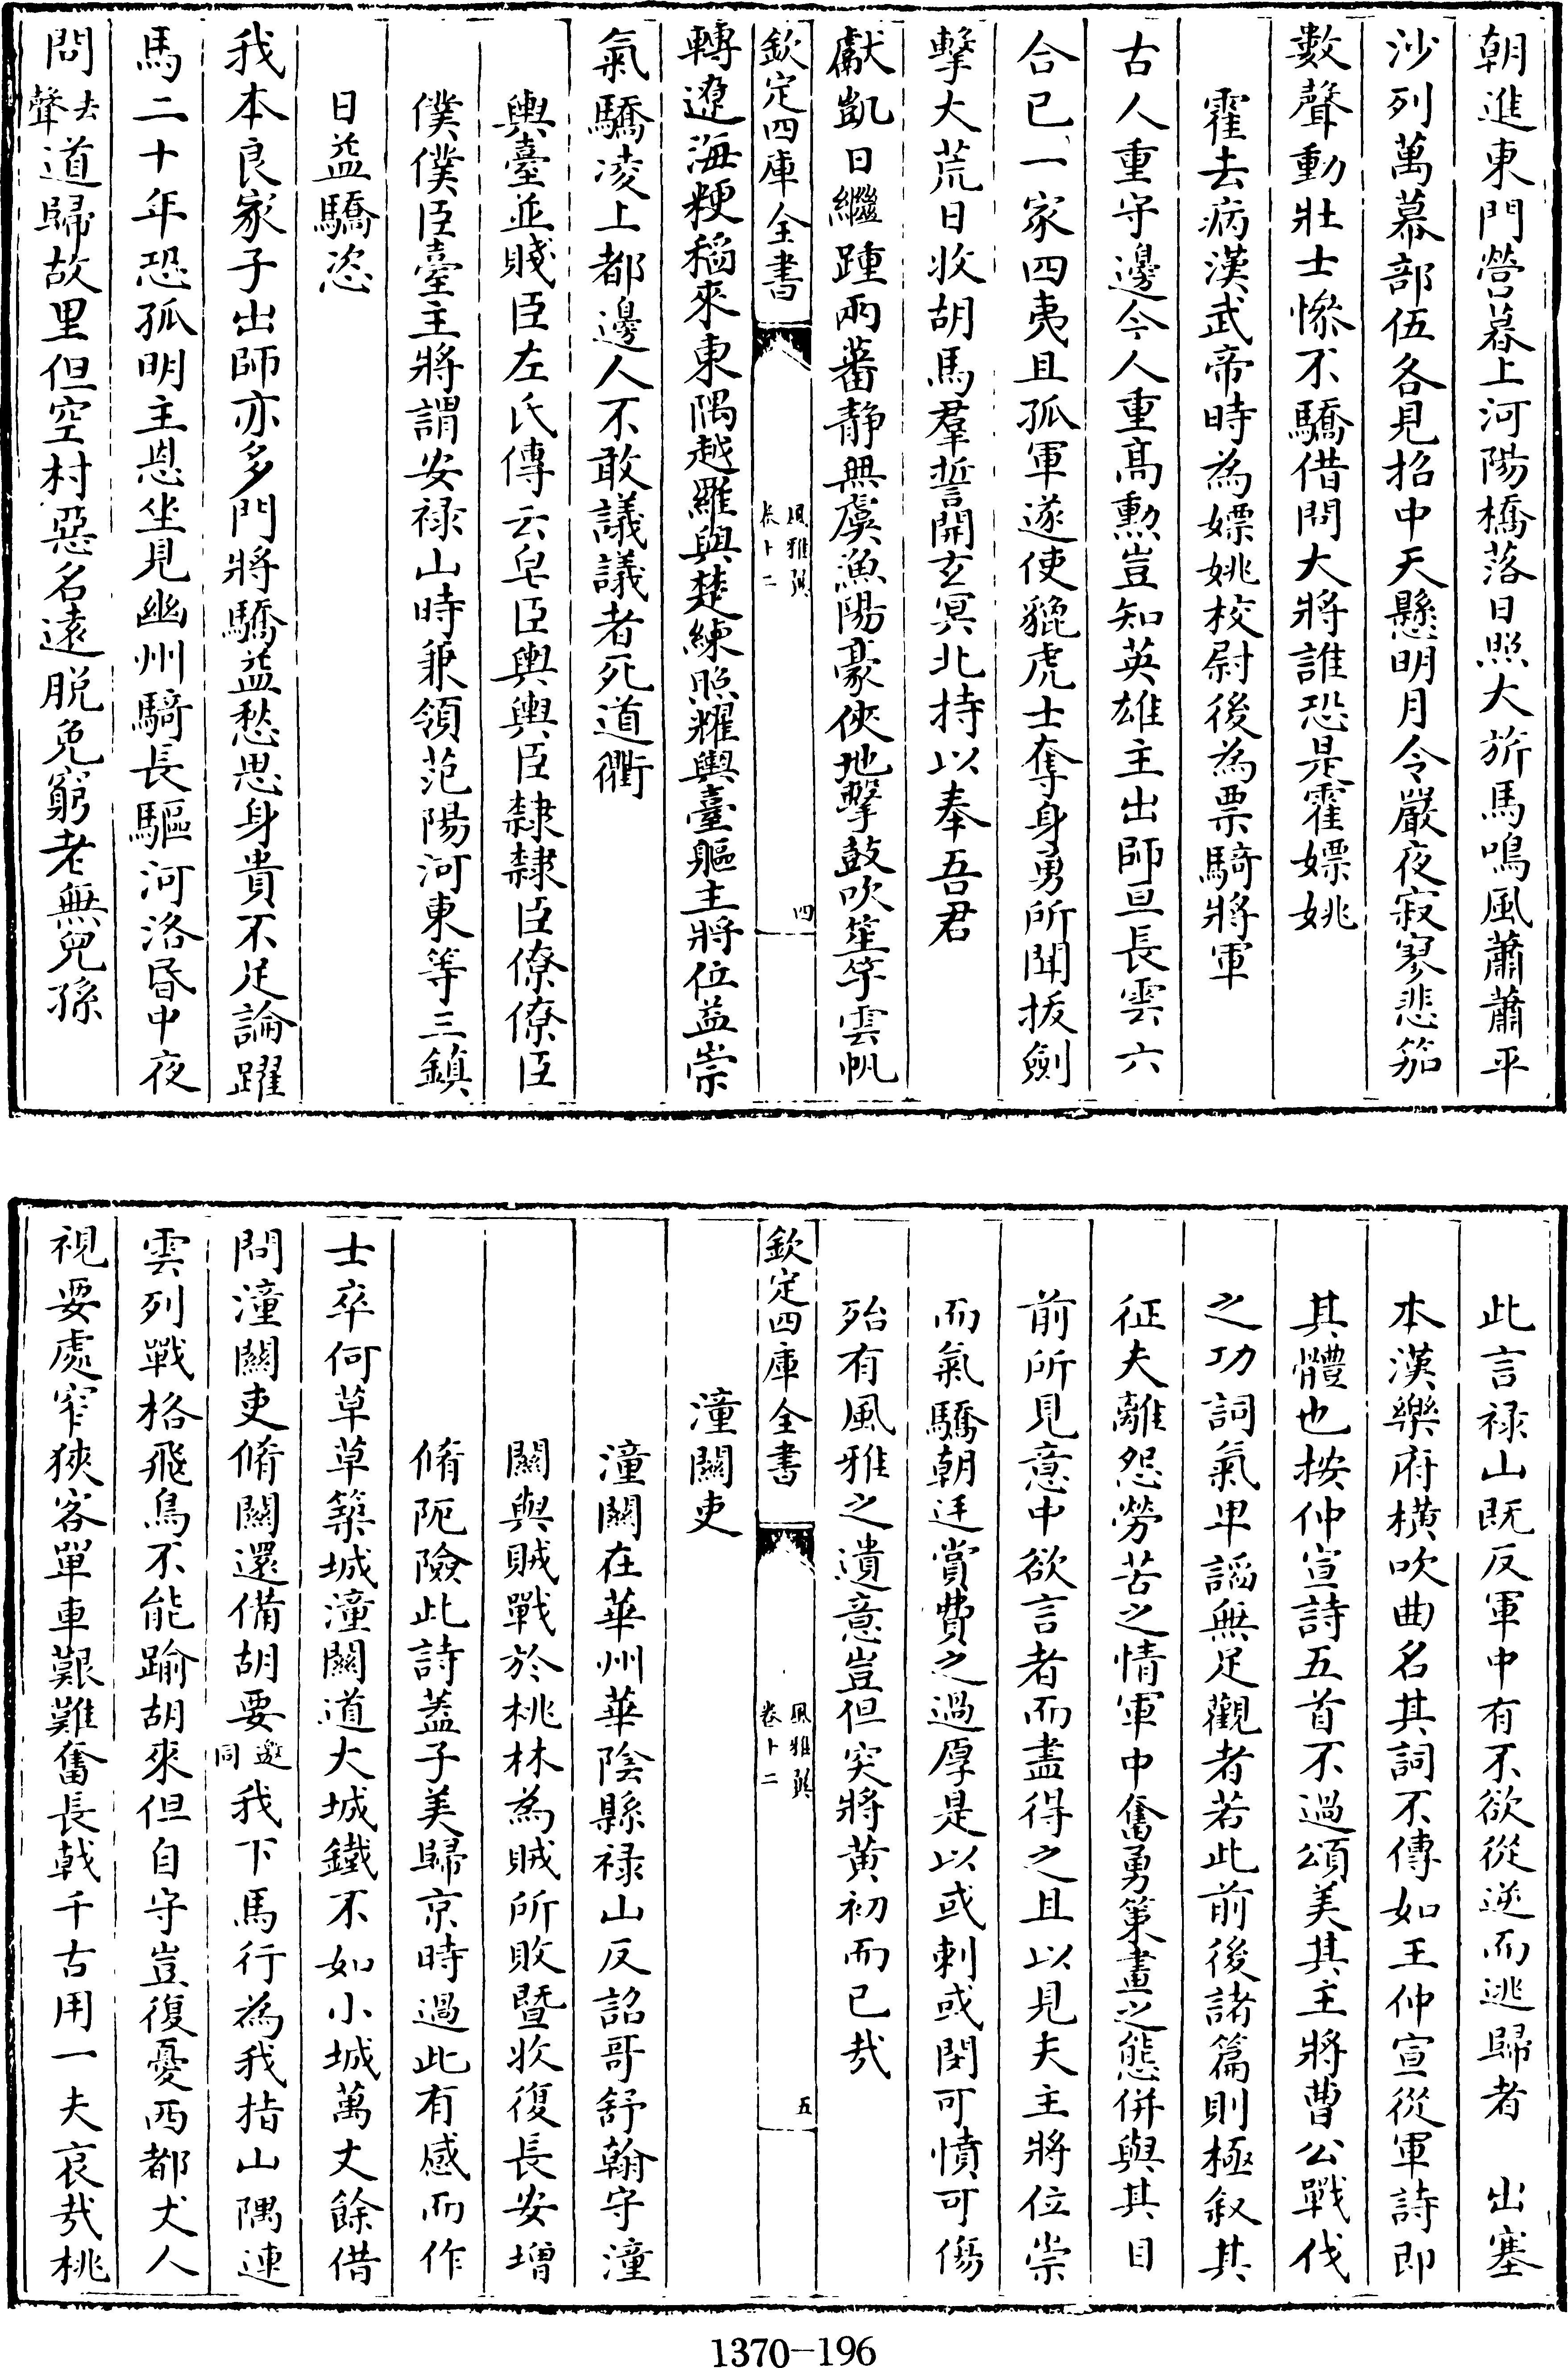 朝進東門營暮上河陽橋落日照大旂馬鳴風蕭蕭平
沙列萬幕部伍各見招中天懸明月令嚴夜寂寥悲笳
數聲動壯士慘不驕借問大將誰恐是霍嫖姚
霍去病漢武帝時為嫖姚校尉後為票騎將軍
古人重守邊今人重髙勲豈知英雄主出師亘長雲六
合已一家四夷且孤軍遂使貔虎士奪身勇所聞拔劍
擊大荒日收胡馬羣誓開玄冥北持以奉吾君
獻凱日繼踵兩蕃静無虞漁陽豪俠地擊鼓吹笙竽雲帆
欽定四庫全書
風雅翼
卷十二
四
轉遼海粳稻來東隅越羅與楚練照耀輿臺軀主將位益崇
氣驕凌上都邊人不敢議議者死道衢
輿臺並賤臣左氏傳云皂臣輿輿臣隸隸臣僚僚臣
僕僕臣臺主將謂安禄山時兼領范陽河東等三鎮
日益驕恣
我本良家子出師亦多門將驕益愁思身貴不足論躍
馬二十年恐孤明主恩坐見幽州騎長驅河洛昏中夜
問去聲道歸故里但空村惡名逺脱免窮老無兒孫
此言禄山既反軍中有不欲從逆而逃歸者 出塞
本漢樂府横吹曲名其詞不傳如王仲宣從軍詩即
其體也按仲宣詩五首不過頌美其主將曹公戰伐
之功詞氣卑謟無足觀者若此前後諸篇則極叙其
征夫離怨勞苦之情軍中奮勇策畫之態併與其目
前所見意中欲言者而盡得之且以見夫主將位崇
而氣驕朝廷賞費之過厚是以或刺或閔可憤可傷
殆有風雅之遺意豈但突將黄初而已哉
欽定四庫全書
風雅翼
卷十二
五
潼關吏
潼關在華州華陰縣禄山反詔哥舒翰守潼
關與賊戰於桃林為賊所敗暨收復長安增
脩阨險此詩蓋子美歸京時過此有感而作
士卒何草草築城潼關道大城鐵不如小城萬丈餘借
問潼關吏脩關還備胡要邀同我下馬行為我指山隅連
雲列戰格飛鳥不能踰胡來但自守豈復憂西都丈人
視要處窄狹容單車艱難奮長戟千古用一夫哀哉桃
1370-196